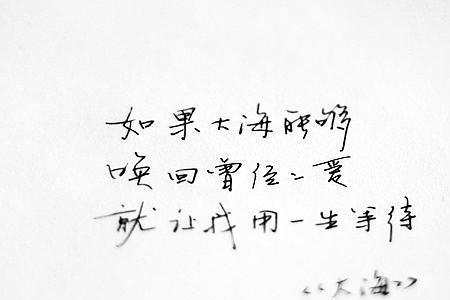 如果大海能够
唤回曾经的爱
就让我用一生等待
《大海》